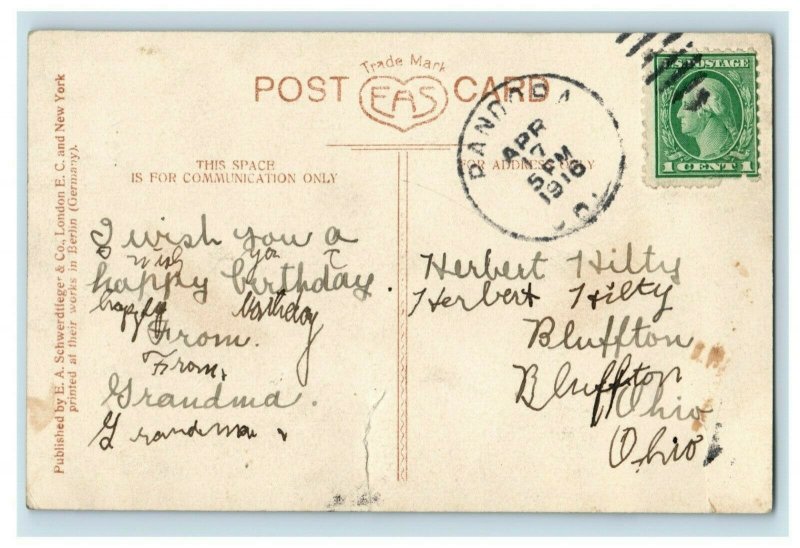 Trade Mark
POST CARD
EAS
U.S. POSTAGE
1 CENT 1
PANDORA
APR
17
5 PM
1916
O.
THIS SPACE
IS FOR COMMUNICATION ONLY
FOR ADDRESS ONLY
Published by E. A. Schwerdtfeger & Co., London E. C. and New York
printed at their works in Berlin (Germany).
I wish you a
I wish you a
happy birthday.
happy birthday
From.
From.
Grandma.
Grandma.
Herbert Hilty
Herbert Hilty
Bluffton
Bluffton
Ohio
Ohio